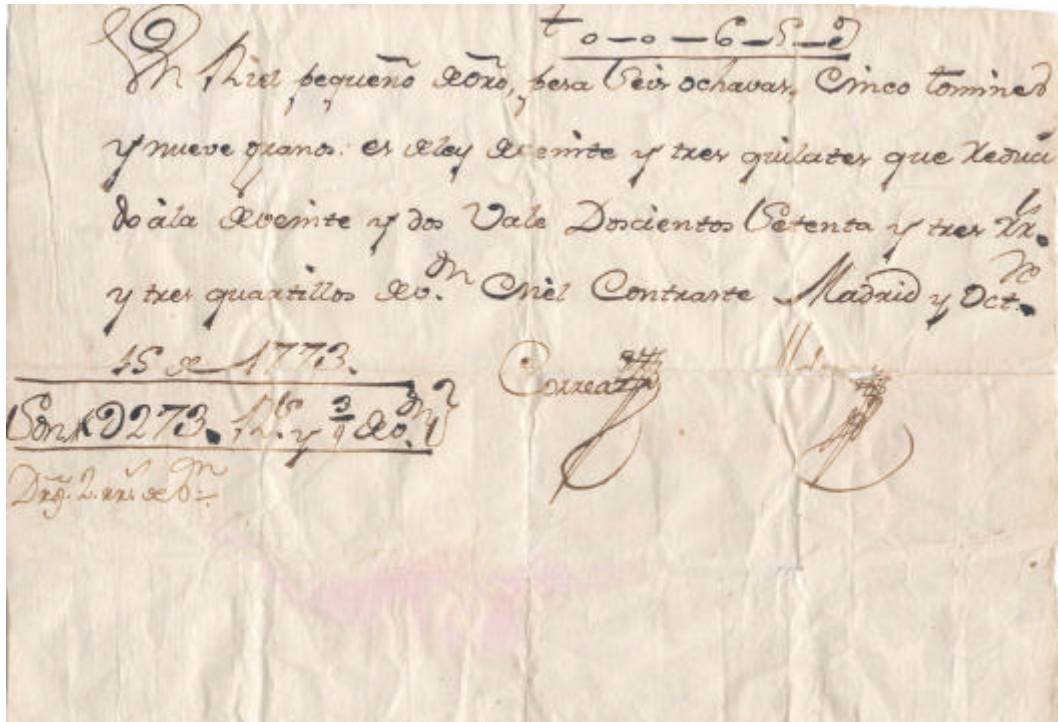 t o — o — 6 — 5 — 9
Un Riel pequeño de oro, pesa Seis ochavas, Cinco tomines
y nueve granos: es de ley de veinte y tres quilates que Reduci
do à la de veinte y dos Vale Doscientos Setenta y tres Rs.
y tres quartillos de vn. Cnel Contraste Madrid y Octre.
15 de 1773.
Correa
Son D273. Rs. y 3/4 de vn.
Dros. 2. rrs. de vn